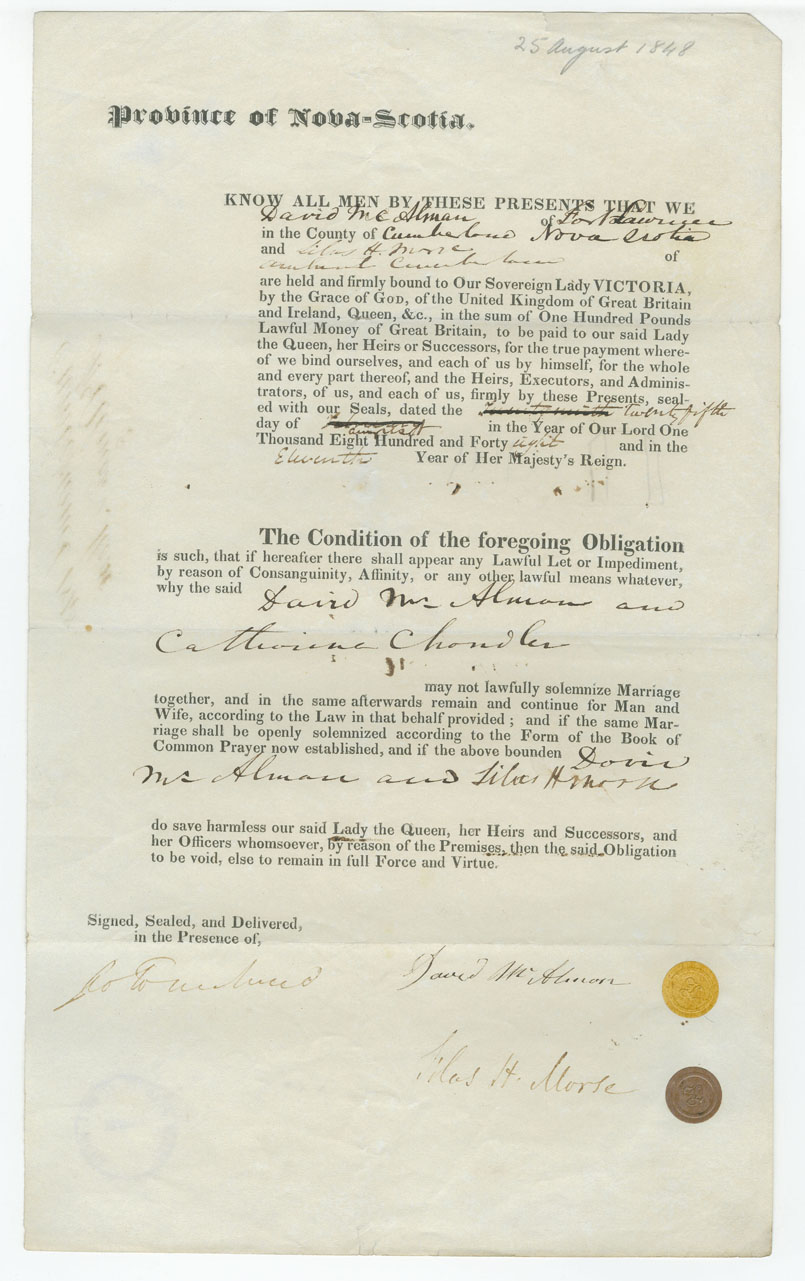 25 August 1848
Province of Nova-Scotia.
KNOW ALL MEN BY THESE PRESENTS THAT WE
David McAlman of Fort Lawrence
in the County of Cumberland Nova Scotia
and Silas H. Morse of
Amherst Cumberland
are held and firmly bound to Our Sovereign Lady VICTORIA,
by the Grace of GOD, of the United Kingdom of Great Britain
and Ireland, Queen, &c., in the sum of One Hundred Pounds
Lawful Money of Great Britain, to be paid to our said Lady
the Queen, her Heirs or Successors, for the true payment where-
of we bind ourselves, and each of us by himself, for the whole
and every part thereof, and the Heirs, Executors, and Adminis-
trators, of us, and each of us, firmly by these Presents, seal-
ed with our Seals, dated the twenty fifth
day of August in the Year of Our Lord One
Thousand Eight Hundred and Forty eight and in the
Eleventh Year of Her Majesty's Reign.
The Condition of the foregoing Obligation
is such, that if hereafter there shall appear any Lawful Let or Impediment,
by reason of Consanguinity, Affinity, or any other lawful means whatever,
why the said David McAlman and
Catherine Chandler
may not lawfully solemnize Marriage
together, and in the same afterwards remain and continue for Man and
Wife, according to the Law in that behalf provided; and if the same Mar-
riage shall be openly solemnized according to the Form of the Book of
Common Prayer now established, and if the above bounden David
McAlman and Silas H Morse
do save harmless our said Lady the Queen, her Heirs and Successors, and
her Officers whomsoever, by reason of the Premises, then the said Obligation
to be void, else to remain in full Force and Virtue.
Signed, Sealed, and Delivered,
in the Presence of,
David McAlmon
Silas H. Morse